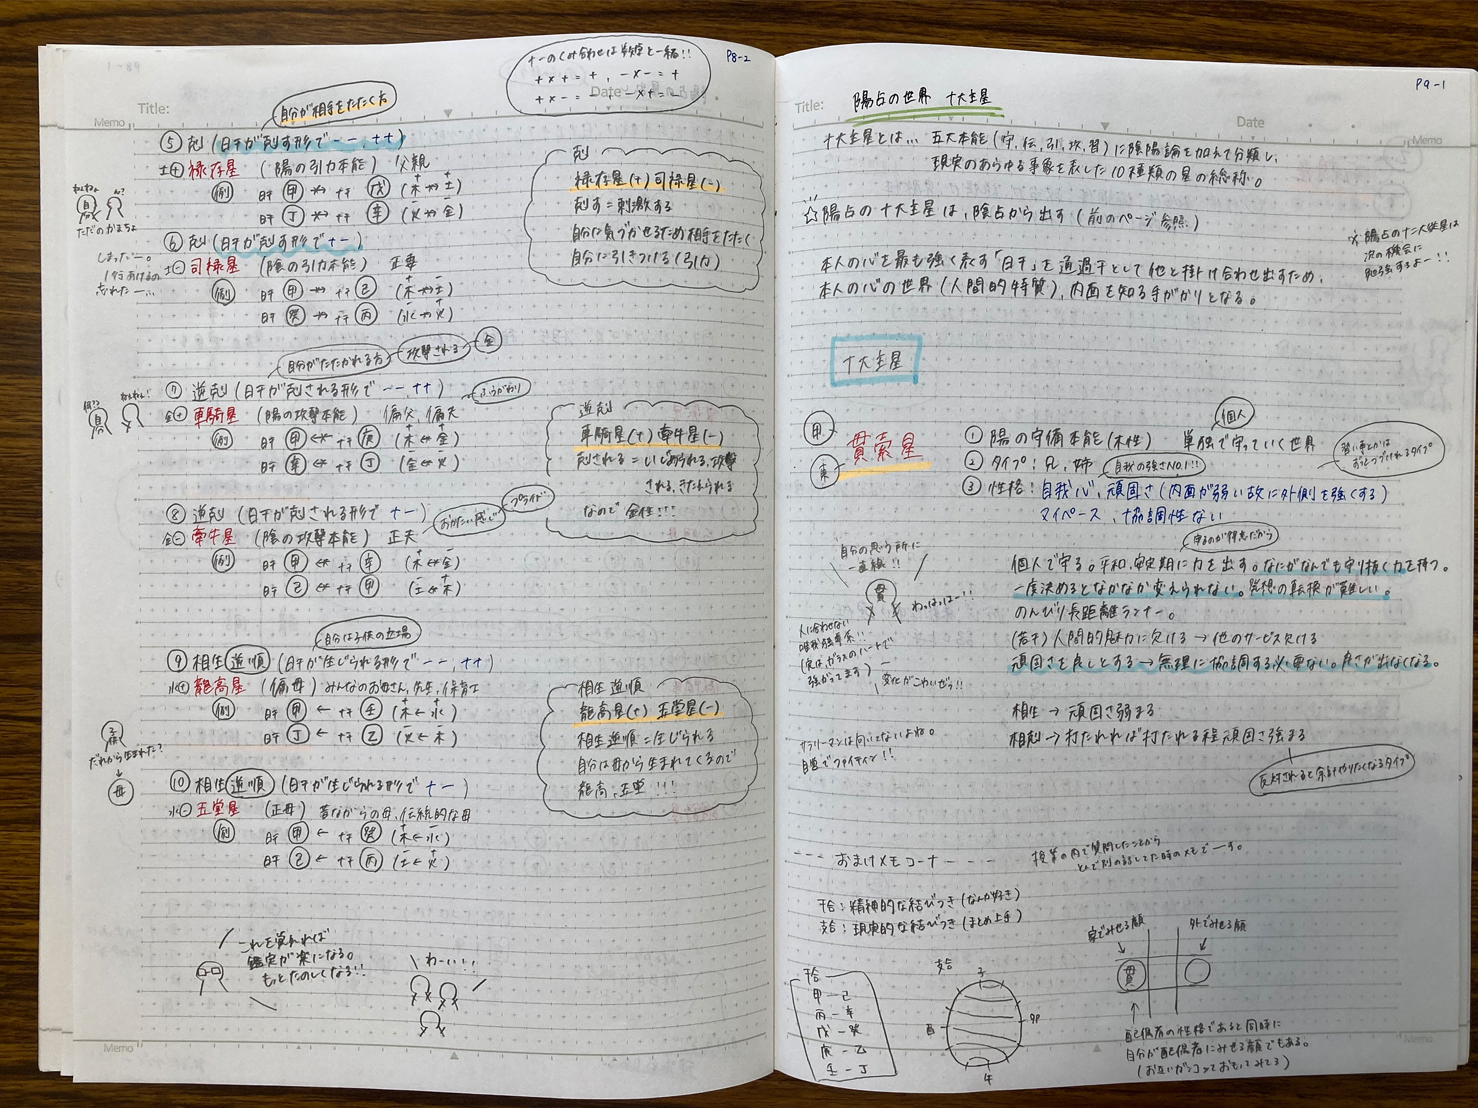 P8-2
+-のくみ合わせは算数と一緒!!
+×+=+, -×-=+
+×-=- -×+=-
Title:
Date
Memo
自分が相手をたたく方
⑤ 剋(日干が剋す形で--,++)
土+ 禄存星 (陽の引力本能) 父親
例 日干 甲 → 十干 戊 (木→土)
日干 丁 → 十干 辛 (火→金)
ただのかまちょ
⑥ 剋(日干が剋す形で+-)
土- 司禄星 (陰の引力本能) 正妻
例 日干 甲 → 十干 己 (木→土)
日干 癸 → 十干 丙 (水→火)
しまったー。
1行あけるの
忘れたー…
剋
禄存星(+) 司禄星(-)
剋す=刺激する
自分に気づかせるため相手をたたく
自分に引きつける(引力)
自分がたたかれる方
攻撃される
金
⑦ 逆剋(日干が剋される形で--,++)
ふうがわり
金+ 車騎星 (陽の攻撃本能) 偏父、偏夫
例 日干 甲 ← 十干 庚 (木←金)
日干 辛 ← 十干 丁 (金←火)
⑧ 逆剋(日干が剋される形で+-)
おかたい感じ
プライド
金- 牽牛星 (陰の攻撃本能) 正夫
例 日干 甲 ← 十干 辛 (木←金)
日干 己 ← 十干 甲 (土←木)
逆剋
車騎星(+) 牽牛星(-)
剋される=いじめられる、攻撃
される、きたえられる
なので 金性!!!
自分は子供の立場
⑨ 相生 逆順 (日干が生じられる形で--,++)
水+ 龍高星 (偏母) みんなのお母さん、先生、保育士
例 日干 甲 ← 十干 壬 (木←水)
日干 丁 ← 十干 乙 (火←木)
だれから生まれた?
母
⑩ 相生 逆順 (日干が生じられる形で+-)
水- 玉堂星 (正母) 昔ながらの母、伝統的な母
例 日干 甲 ← 十干 癸 (木←水)
日干 己 ← 十干 丙 (土←火)
相生 逆順
龍高星(+) 玉堂星(-)
相生逆順=生じられる
自分は母から生まれてくるので
龍高、玉堂!!!
これを覚えれば
鑑定が楽になる。
もっとたのしくなる!!
わーい!!
Memo
P9-1
Title:
陽占の世界 十大主星
Date
Memo
十大主星とは… 五大本能(守、伝、引、攻、習)に陰陽論を加えて分類し、
現実のあらゆる事象を表した10種類の星の総称。
☆陽占の十大主星は、陰占から出す(前のページ参照)
※陽占の十二大従星は
次の機会に
勉強するよー!!
本人の心を最も強く表す「日干」を通過干として他と掛け合わせ出すため、
本人の心の世界(人間的特質)、内面を知る手がかりとなる。
十大主星
甲
東
貫索星
個人
① 陽の守備本能(木性) 単独で守っていく世界
② タイプ:兄、姉
自我の強さNO.1!!
③ 性格:自我心、頑固さ(内面が弱い故に外側を強くする)
マイペース、協調性ない
守るのが得意だから
個人で守る。平和、安定期に力を出す。なにがなんでも守り抜く力を持つ。
一度決めるとなかなか変えられない。発想の転換が難しい。
のんびり長距離ランナー。
(若干)人間的魅力に欠ける→他のサービス欠ける
頑固さを良しとする→無理に協調する必要ない。良さが出なくなる。
自分の思う所に
一直線!!
貫
わっはっはー!!
人に合わせない
唯我独尊系!!
(実はガラスのハートで
強がってます)
変化がこわいぜっ!!
相生→頑固さ弱まる
相剋→打たれれば打たれる程頑固さ強まる
反対されると余計やりたくなるタイプ
サラリーマンは向いてないよね。
自営でファイティン!!
--- おまけメモコーナー ---
授業の内で質問したことから
とんで別の話してた時のメモでーす。
干合:精神的な結びつき(なんか好き)
支合:現実的な結びつき(まとめ上手)
干合
甲-己
丙-辛
戊-癸
庚-乙
壬-丁
支合
子
酉
卯
午
家でみせる顔
外でみせる顔
貫
配偶者の性格であると同時に
自分が配偶者にみせる顔でもある。
Memo